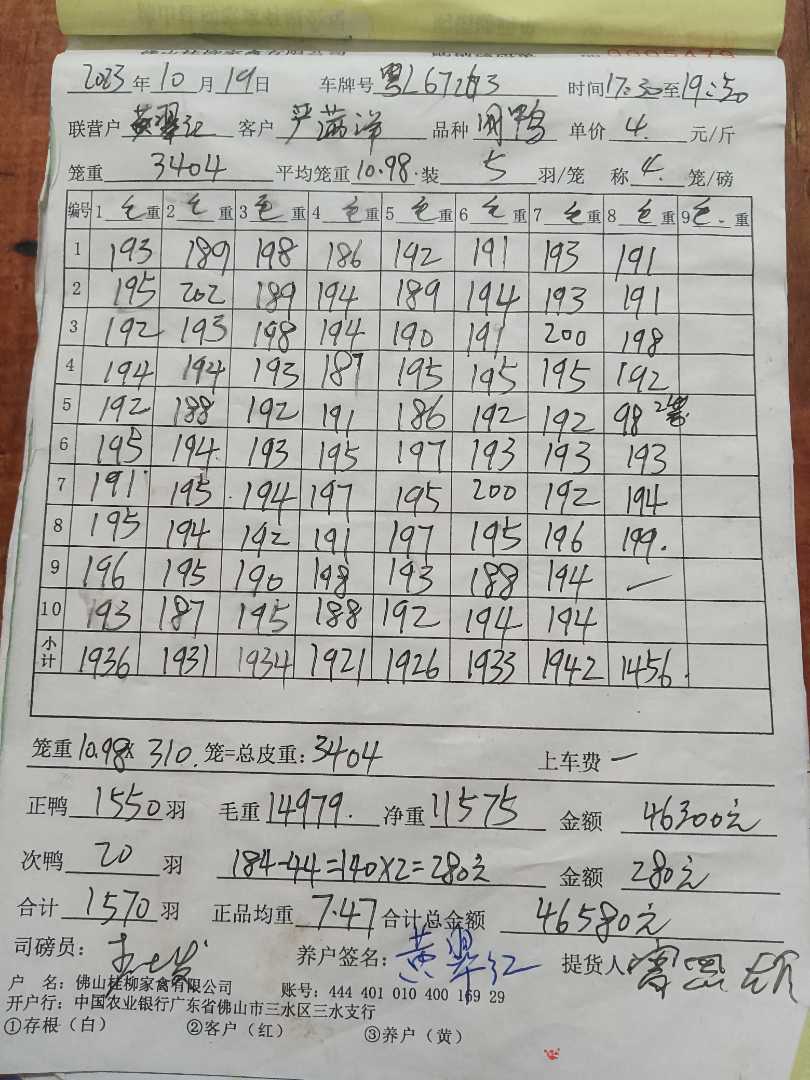 2023年10月19日 车牌号 粤L67263 时间17:30至19:50
联营户 黄翠红 客户 严满洋 品种 闲鸭 单价 4. 元/斤
笼重 3404 平均笼重10.98.装 5 羽/笼 称 4. 笼/磅
编号 1 毛重 2 毛重 3 毛重 4 毛重 5 毛重 6 毛重 7 毛重 8 毛重 9 毛.重
1 193 189 198 186 192 191 193 191
2 195 202 189 194 189 194 193 191
3 192 193 198 194 190 191 200 198
4 194 194 193 187 195 195 195 192
5 192 188 192 191 186 192 192 98 2笼
6 195 194. 193 195 197 193 193 193
7 191 195 194 197 195 200 192 194
8 195 194 192 191 197 195 196 199.
9 196 195 190 198 193 188 194 —
10 193 187 195 188 192 194 194
小计 1936 1931 1934 1921 1926 1933 1942 1456.
笼重 10.98 x 310. 笼=总皮重:3404 上车费 一
正鸭 1550 羽 毛重 14979. 净重 11575 金额 46300元
次鸭 20 羽 184-44=140×2=280元 金额 280元
合计 1570 羽 正品均重 7.47 合计总金额 46580元
司磅员: 养户签名: 黄翠红 提货人:
户 名: 佛山桂柳家禽有限公司 账号: 444 401 010 400 169 29
开户行: 中国农业银行广东省佛山市三水区三水支行
①存根(白) ②客户(红) ③养户(黄)